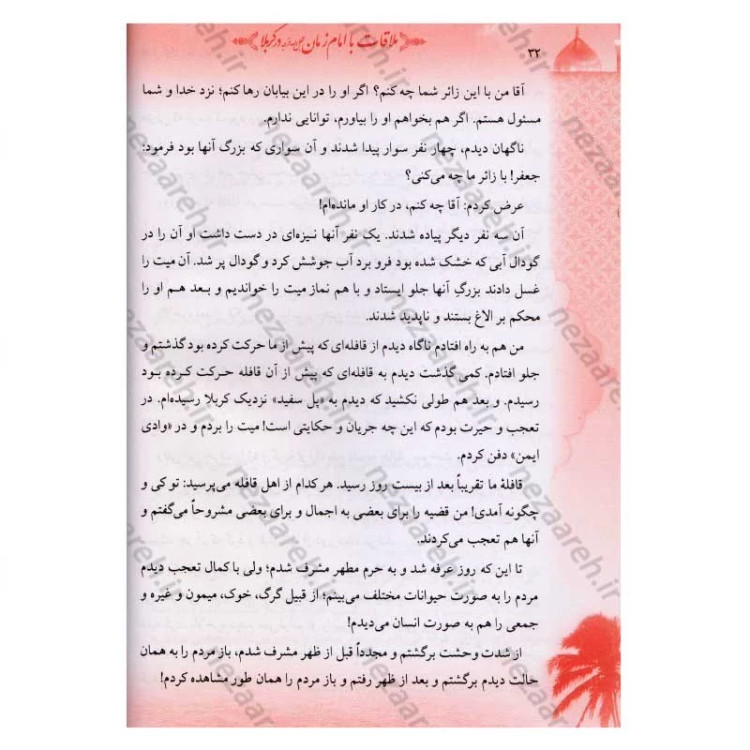 ملاقات با امام زمان در کربلا
۳۲
آقا من با این زائر شما چه کنم؟ اگر او را در این بیابان رها کنم؛ نزد خدا و شما
مسئول هستم. اگر هم بخواهم او را بیاورم، توانایی ندارم.
ناگهان دیدم، چهار نفر سوار پیدا شدند و آن سواری که بزرگ آنها بود فرمود:
جعفر! با زائر ما چه می‌کنی؟
عرض کردم: آقا چه کنم، در کار او مانده‌ام!
آن سه نفر دیگر پیاده شدند. یک نفر آنها نیزه‌ای در دست داشت او آن را در
گودال آبی که خشک شده بود فرو برد آب جوشش کرد و گودال پر شد. آن میت را
غسل دادند بزرگِ آنها جلو ایستاد و با هم نماز میت را خواندیم و بعد هم او را
محکم بر الاغ بستند و ناپدید شدند.
من هم به راه افتادم ناگاه دیدم از قافله‌ای که پیش از ما حرکت کرده بود گذشتم و
جلو افتادم. کمی گذشت دیدم به قافله‌ای که پیش از آن قافله حرکت کرده بود
رسیدم. و بعد هم طولی نکشید که دیدم به «پل سفید» نزدیک کربلا رسیده‌ام. در
تعجب و حیرت بودم که این چه جریان و حکایتی است! میت را بردم و در «وادی
ایمن» دفن کردم.
قافلهٔ ما تقریباً بعد از بیست روز رسید. هر کدام از اهل قافله می‌پرسید: تو کی و
چگونه آمدی! من قضیه را برای بعضی به اجمال و برای بعضی مشروحاً می‌گفتم و
آنها هم تعجب می‌کردند.
تا این که روز عرفه شد و به حرم مطهر مشرف شدم؛ ولی با کمال تعجب دیدم
مردم را به صورت حیوانات مختلف می‌بینم؛ از قبیل گرگ، خوک، میمون و غیره و
جمعی را هم به صورت انسان می‌دیدم!
از شدت وحشت برگشتم و مجدداً قبل از ظهر مشرف شدم، باز مردم را به همان
حالت دیدم برگشتم و بعد از ظهر رفتم و باز مردم را همان طور مشاهده کردم!
nezaareh.ir